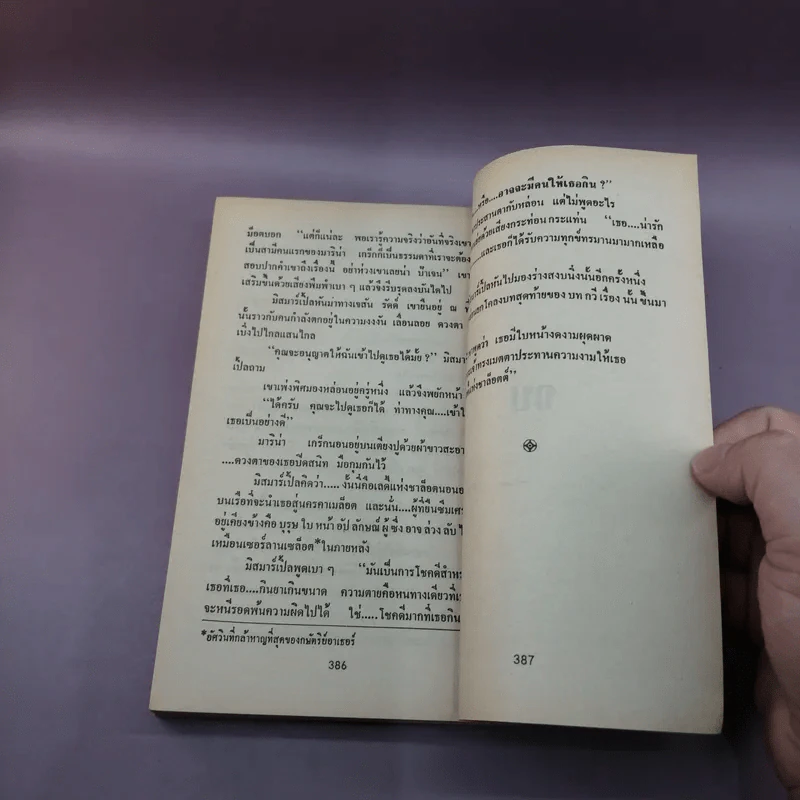 ม็อดบอก "แต่ก็แน่ละ พอเรารู้ความจริงว่าอันที่จริงเขา
เป็นสามีคนแรกของมาริน่า เกร็กก็เป็นธรรมดาที่เราจะต้อง
สอบปากคำเขาถึงเรื่องนี้ อย่าห่วงเขาเลยน่า ป้าเจน" เขา
เสริมขึ้นด้วยเสียงพึมพำเบา ๆ แล้วจึงรีบรุดลงบันไดไป
มิสมาร์เปิ้ลหันมาทางเจสัน รัดด์ เขายืนอยู่ ณ
นั้นราวกับคนกำลังตกอยู่ในความงงงัน เลื่อนลอย ดวงตา
เบิ่งไปไกลแสนไกล
"คุณจะอนุญาตให้ฉันเข้าไปดูเธอได้มั้ย ?" มิสมาร์
เปิ้ลถาม
เขาเพ่งพิศมองหล่อนอยู่ครู่หนึ่ง แล้วจึงพยักหน้า
"ได้ครับ คุณจะไปดูเธอก็ได้ ท่าทางคุณ....เข้าใ
เธอเป็นอย่างดี"
มาริน่า เกร็กนอนอยู่บนเตียงปูด้วยผ้าขาวสะอา
....ดวงตาของเธอปิดสนิท มือกุมกันไว้
มิสมาร์เปิ้ลคิดว่า..... งั้นนี่คือเลดี้แห่งชาล็อตนอนอ
บนเรือที่จะนำเธอสู่นครคาเมล็อต และนั่น....ผู้ที่ยืนซึมเศร
อยู่เคียงข้างคือ บุรุษ ใบ หน้า อัป ลักษณ์ ผู้ ซึ่ง อาจ ล่วง ลับ ไ
เหมือนเซอร์ลานเซล็อต*ในภายหลัง
มิสมาร์เปิ้ลพูดเบา ๆ "มันเป็นการโชคดีสำหร
เธอที่เธอ....กินยาเกินขนาด ความตายคือหนทางเดียวที่เ
จะหนีรอดพ้นความผิดไปได้ ใช่.....โชคดีมากที่เธอกิน
*อัศวินที่กล้าหาญที่สุดของกษัตริย์อาเธอร์
386
...หรือ....อาจจะมีคนให้เธอกิน ?"
ประสานตากับหล่อน แต่ไม่พูดอะไร
ด้วยเสียงกระท่อน กระแท่น "เธอ....น่ารัก
....และเธอก็ได้รับความทุกข์ทรมานมามากเหลือ
มาร์เปิ้ลหันไปมองร่างสงบนิ่งนั้นอีกครั้งหนึ่ง
โคลงบทสุดท้ายของ บท กวี เรื่อง นั้น ขึ้นมา
พูดว่า เธอมีใบหน้างดงามผุดผาด
เจ้าทรงเมตตาประทานความงามให้เธอ
แห่งชาล็อตต์"
387